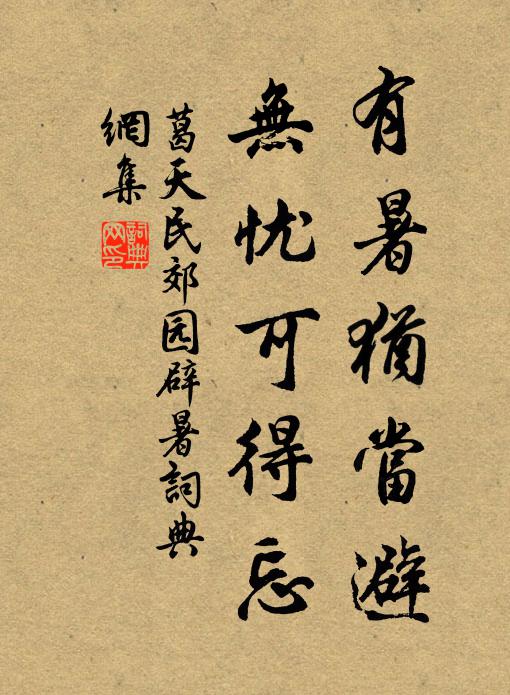 有暑猶當避
無忧可得忘
葛天民郊园辟暑詞典
網集
詞典
网印